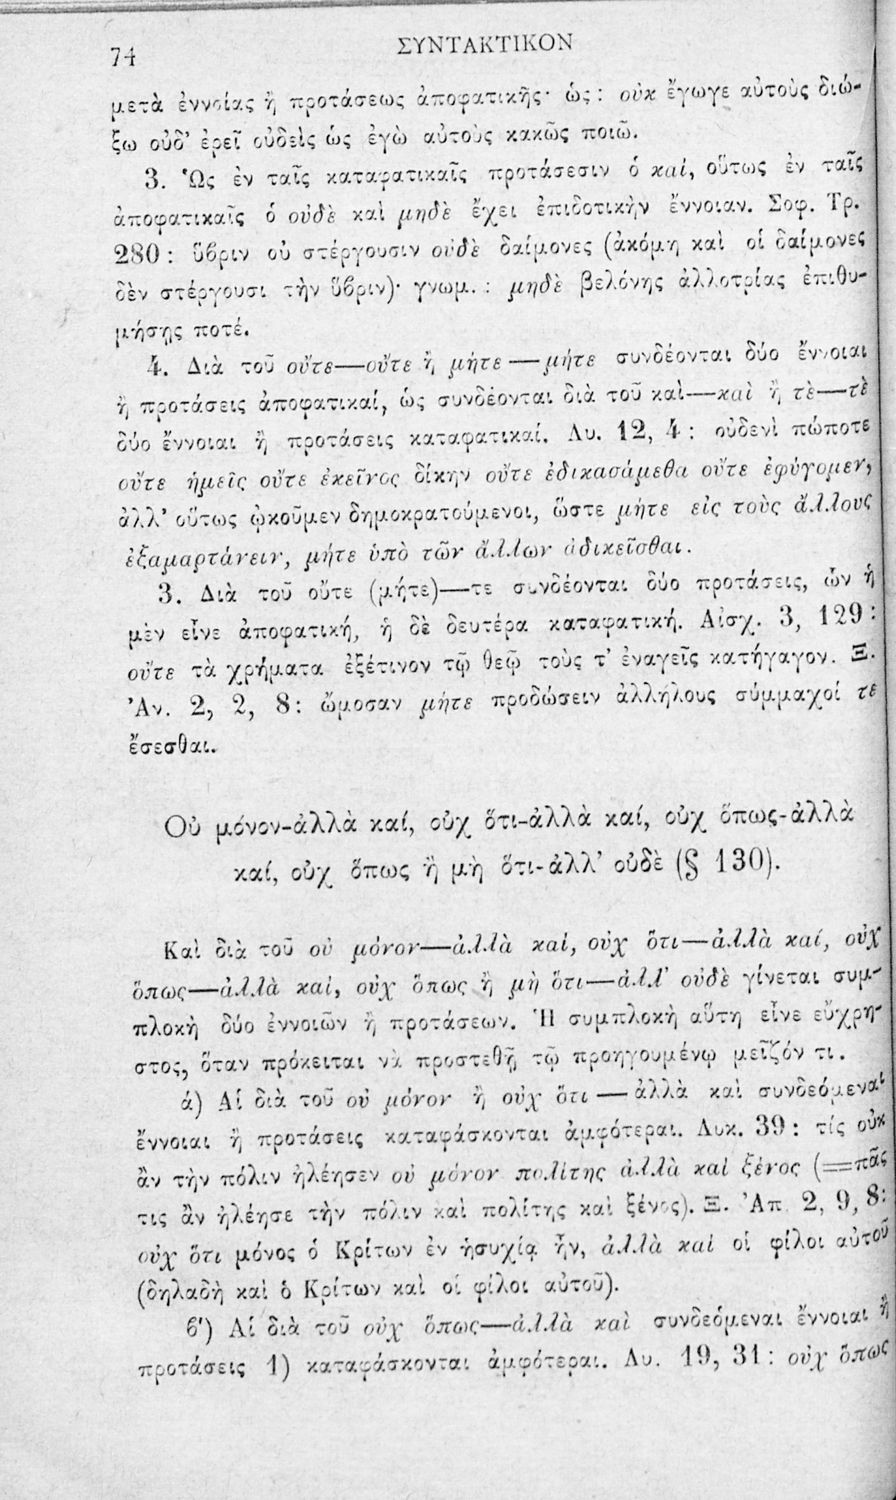 74
ΣΥΝΤΑΚΤΙΚΟΝ
μετὰ ἐννοίας ἢ προτάσεως ἀποφατικῆς· ὡς: οὐκ ἔγωγε αὐτοὺς διώ-
ξω οὐδ' ἐρεῖ οὐδεὶς ὡς ἐγὼ αὐτοὺς κακῶς ποιῶ.
3. Ὡς ἐν ταῖς καταφατικαῖς προτάσεσιν ὁ καί, οὕτως ἐν ταῖς
ἀποφατικαῖς ὁ οὐδὲ καὶ μηδὲ ἔχει ἐπιδοτικὴν ἔννοιαν. Σοφ. Τρ.
280: ὕβριν οὐ στέργουσιν οὐδὲ δαίμονες (ἀκόμη καὶ οἱ δαίμονες
δὲν στέργουσι τὴν ὕβριν)· γνωμ.: μηδὲ βελόνης ἀλλοτρίας ἐπιθυ-
μήσῃς ποτέ.
4. Διὰ τοῦ οὔτε—οὔτε ἢ μήτε—μήτε συνδέονται δύο ἔννοιαι
ἢ προτάσεις ἀποφατικαί, ὡς συνδέονται διὰ τοῦ καὶ—καὶ ἢ τὲ—τὲ
δύο ἔννοιαι ἢ προτάσεις καταφατικαί. Λυ. 12, 4: οὐδενὶ πώποτε
οὔτε ἡμεῖς οὔτε ἐκεῖνος δίκην οὔτε ἐδικασάμεθα οὔτε ἐφύγομεν,
ἀλλ' οὕτως ᾠκοῦμεν δημοκρατούμενοι, ὥστε μήτε εἰς τοὺς ἄλλους
ἐξαμαρτάνειν, μήτε ὑπὸ τῶν ἄλλων ἀδικεῖσθαι.
3. Διὰ τοῦ οὔτε (μήτε)—τε συνδέονται δύο προτάσεις, ὧν ἡ
μὲν εἶνε ἀποφατική, ἡ δὲ δευτέρα καταφατική. Αἰσχ. 3, 129:
οὔτε τὰ χρήματα ἐξέτινον τῷ θεῷ τοὺς τ' ἐναγεῖς κατήγαγον. Ξ.
Ἀν. 2, 2, 8: ὤμοσαν μήτε προδώσειν ἀλλήλους σύμμαχοί τε
ἔσεσθαι.
Οὐ μόνον-ἀλλὰ καί, οὐχ ὅτι-ἀλλὰ καί, οὐχ ὅπως-ἀλλὰ
καί, οὐχ ὅπως ἢ μὴ ὅτι-ἀλλ' οὐδὲ (§ 130).
Καὶ διὰ τοῦ οὐ μόνον—ἀλλὰ καί, οὐχ ὅτι—ἀλλὰ καί, οὐχ
ὅπως—ἀλλὰ καί, οὐχ ὅπως ἢ μὴ ὅτι—ἀλλ' οὐδὲ γίνεται συμ-
πλοκὴ δύο ἐννοιῶν ἢ προτάσεων. Ἡ συμπλοκὴ αὕτη εἶνε εὔχρη-
στος, ὅταν πρόκειται νὰ προστεθῇ τῷ προηγουμένῳ μεῖζόν τι.
ά) Αἱ διὰ τοῦ οὐ μόνον ἢ οὐχ ὅτι—ἀλλὰ καὶ συνδεόμεναι
ἔννοιαι ἢ προτάσεις καταφάσκονται ἀμφότεραι. Λυκ. 39: τίς οὐκ
ἂν τὴν πόλιν ἠλέησεν οὐ μόνον πολίτης ἀλλὰ καὶ ξένος (=πᾶς
τις ἂν ἠλέησε τὴν πόλιν καὶ πολίτης καὶ ξένος). Ξ. Ἀπ 2, 9, 8:
οὐχ ὅτι μόνος ὁ Κρίτων ἐν ἡσυχίᾳ ἦν, ἀλλὰ καὶ οἱ φίλοι αὐτοῦ
(δηλαδὴ καὶ ὁ Κρίτων καὶ οἱ φίλοι αὐτοῦ).
β') Αἱ διὰ τοῦ οὐχ ὅπως—ἀλλὰ καὶ συνδεόμεναι ἔννοιαι ἢ
προτάσεις 1) καταφάσκονται ἀμφότεραι. Λυ. 19, 31: οὐχ ὅπως